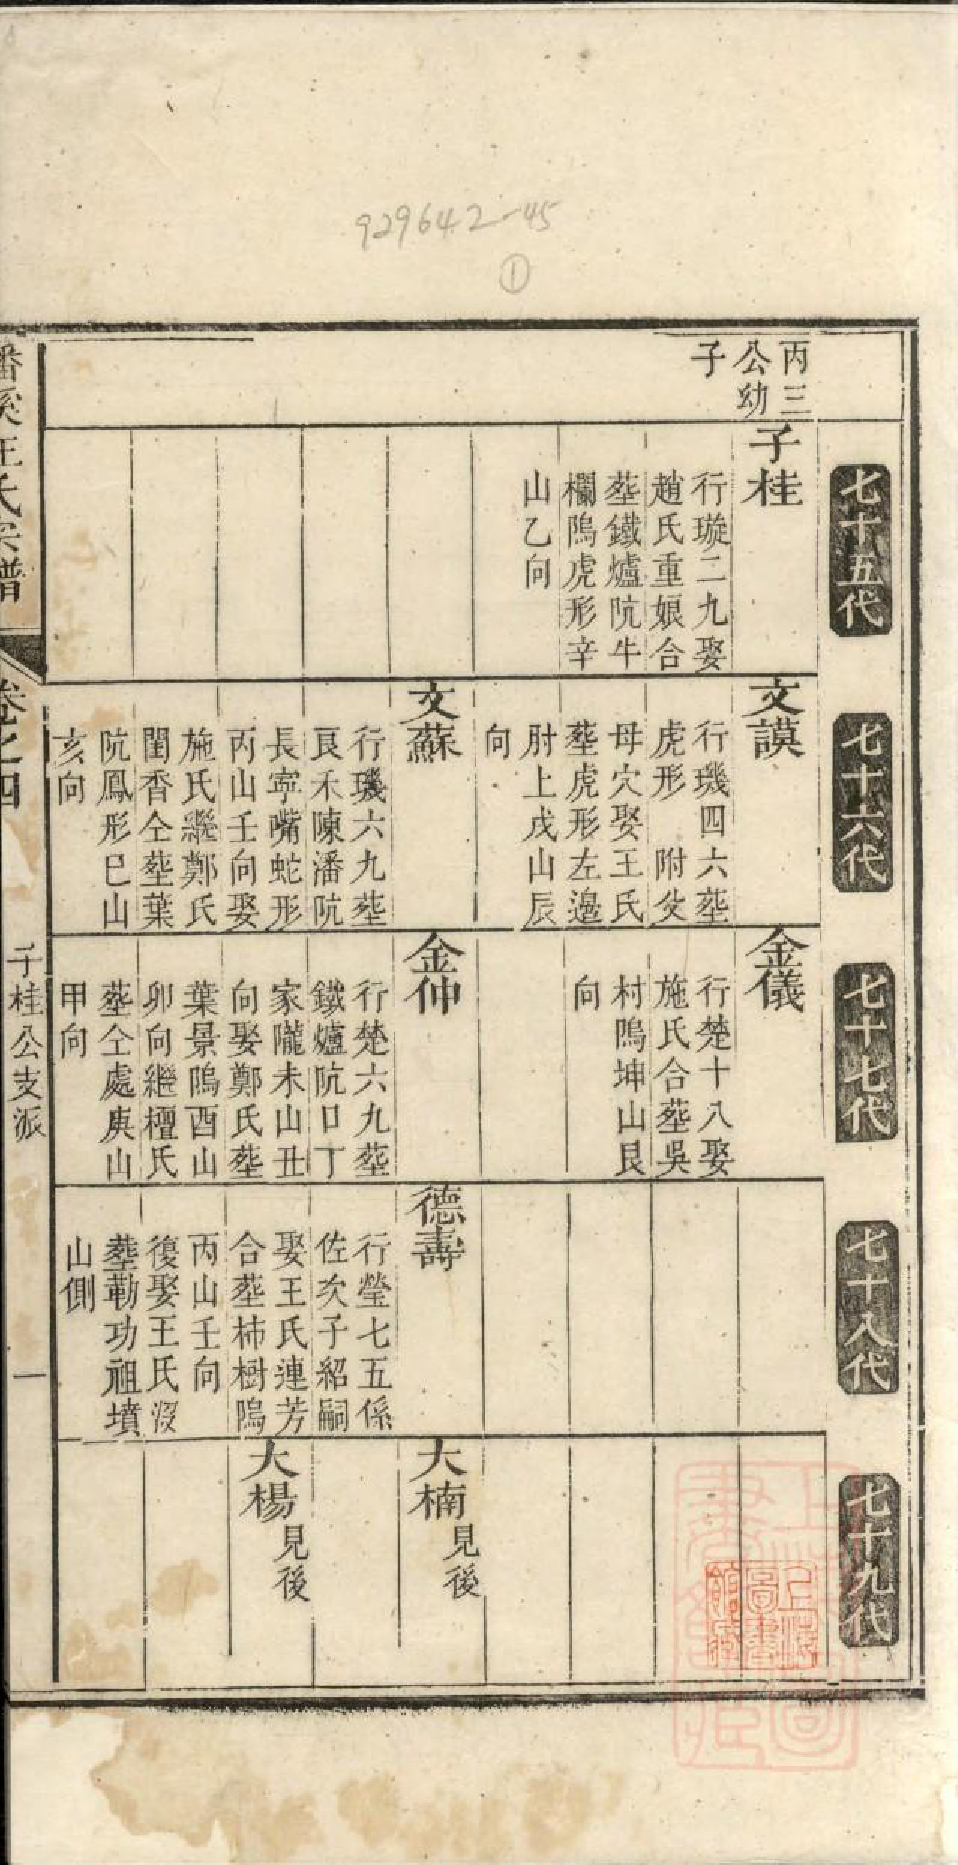 929642-45
①
丙三
公幼
子
七十五代
子桂
行璇二九娶
趙氏重娘合
塟鐵爐阬牛
欄隖虎形辛
山乙向
七十六代
文謨
行璣四六塟
虎形 附父
母穴娶王氏
塟虎形左邊
肘上戌山辰
向
文蘇
行璣六九塟
艮禾陳潘阬
長寧嘴蛇形
丙山壬向娶
施氏繼鄭氏
閨香仝塟葉
阬鳳形巳山
亥向
七十七代
金儀
行楚十八娶
施氏合塟吳
村隖坤山艮
向
金仲
行楚六九塟
鐵爐阬口丁
家隴未山丑
向娶鄭氏塟
葉景隖酉山
卯向繼檀氏
塟仝處庚山
甲向
七十八代
德壽
行瑩七五係
佐次子紹嗣
娶王氏連芳
合塟柿樹隖
丙山壬向
復娶王氏沒
塟勒功祖墳
山側
七十九代
大楠
見後
大楊
見後
潘溪王氏宗譜
卷之四
子桂公支派
一
上海
圖書
館藏